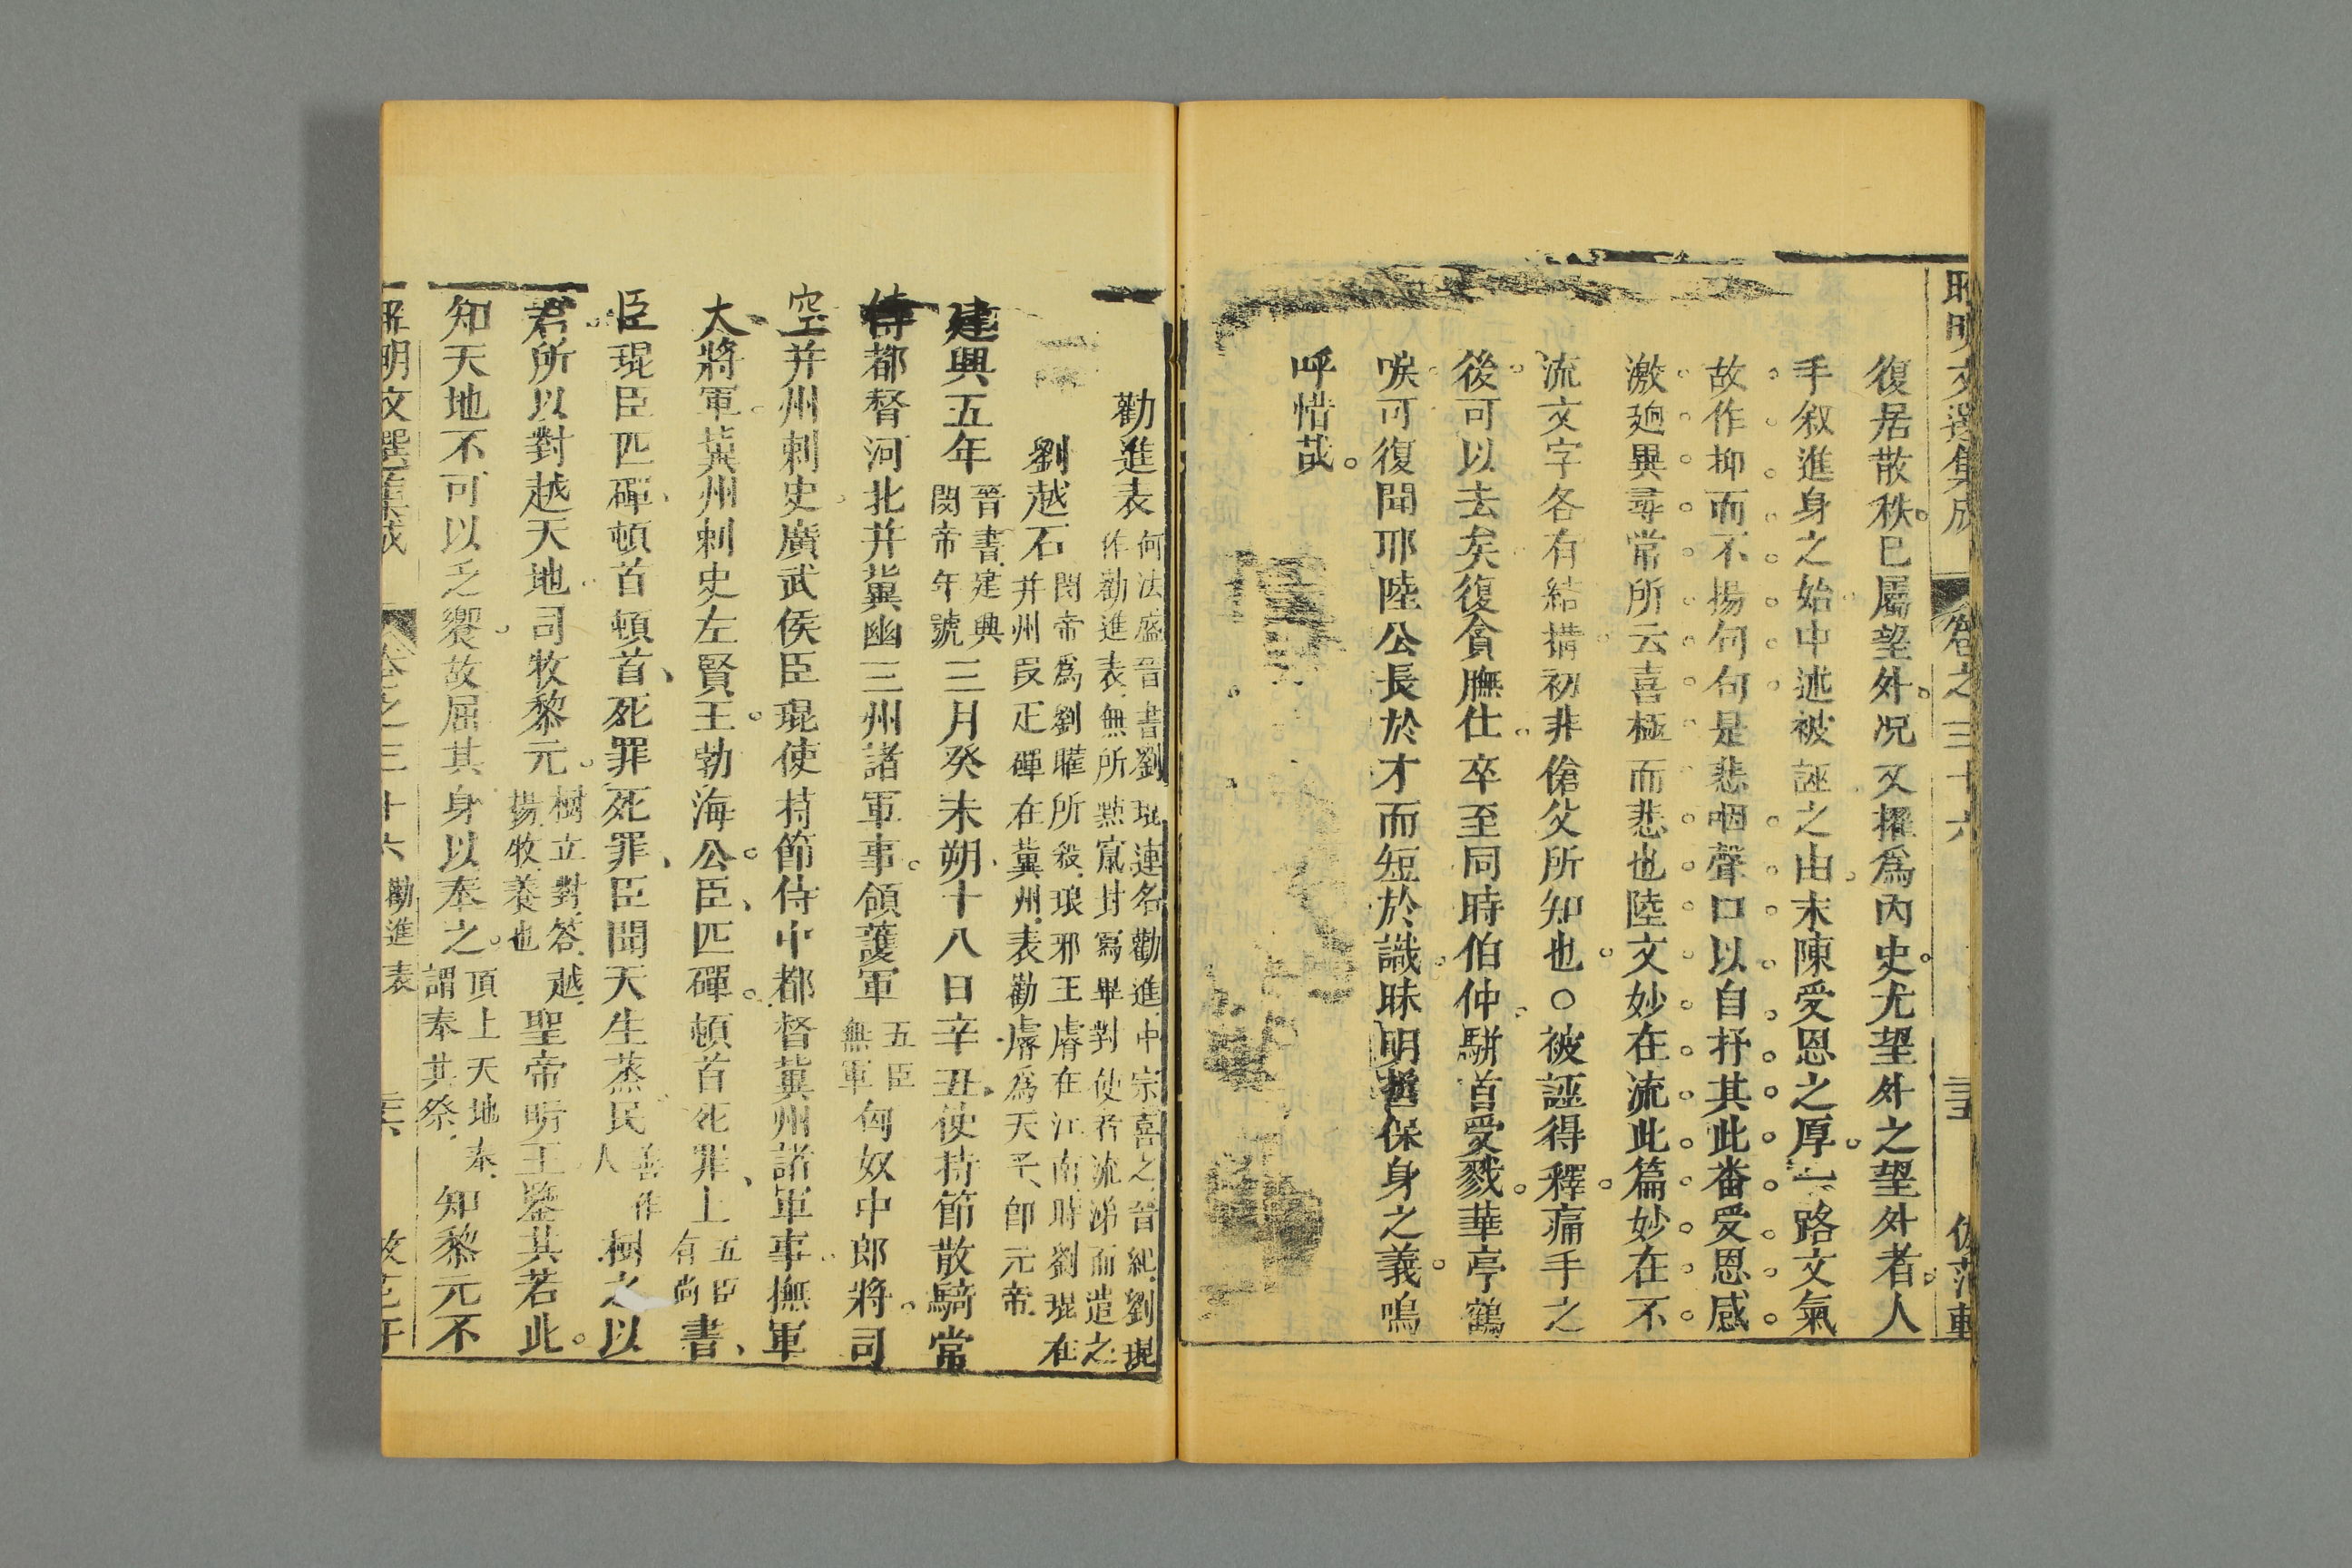 昭明文選集成 卷之三十六 三五 倣范軒
復居散秩已屬望外況又擢爲內史尤望外之望外者人
手叙進身之始中述被誣之由末陳受恩之厚一路文氣
故作抑而不揚句句是悲咽聲口以自抒其此畨受恩感
激逈異尋常所云喜極而悲也陸文妙在流此篇妙在不
流文字各有結搆初非傖父所知也○被誣得釋痛手之
後可以去矣復貪膴仕卒至同時伯仲駢首受戮華亭鶴
唳可復聞耶陸公長於才而短於識昧明哲保身之義嗚
呼惜哉
勸進表 何法盛晉書劉琨連名勸進中宗喜之晉紀劉琨
作勸進表無所點竄封寫畢對使者流涕而遣之
劉越石 閔帝爲劉曜所殺琅邪王睿在江南時劉琨在
并州段疋磾在冀州表勸睿爲天子卽元帝
建興五年 晉書建興
閔帝年號 三月癸未朔十八日辛丑使持節散騎常
侍都督河北并冀幽三州諸軍事領護軍 五臣
無軍 匈奴中郎將司
空并州刺史廣武侯臣琨使持節侍中都督冀州諸軍事撫軍
大將軍冀州刺史左賢王勃海公臣匹磾頓首死罪上 五臣
有尚 書
臣琨臣匹磾頓首頓首死罪死罪臣聞天生蒸民 善作
人 樹之以
君所以對越天地司牧黎元 樹立對答越
揚牧養也 聖帝明王鑒其若此
知天地不可以乏饗故屈其身以奉之 頂上天地奉
謂奉其祭 知黎元不
昭明文選集成 卷之三十六 勸進表 三六 倣范軒